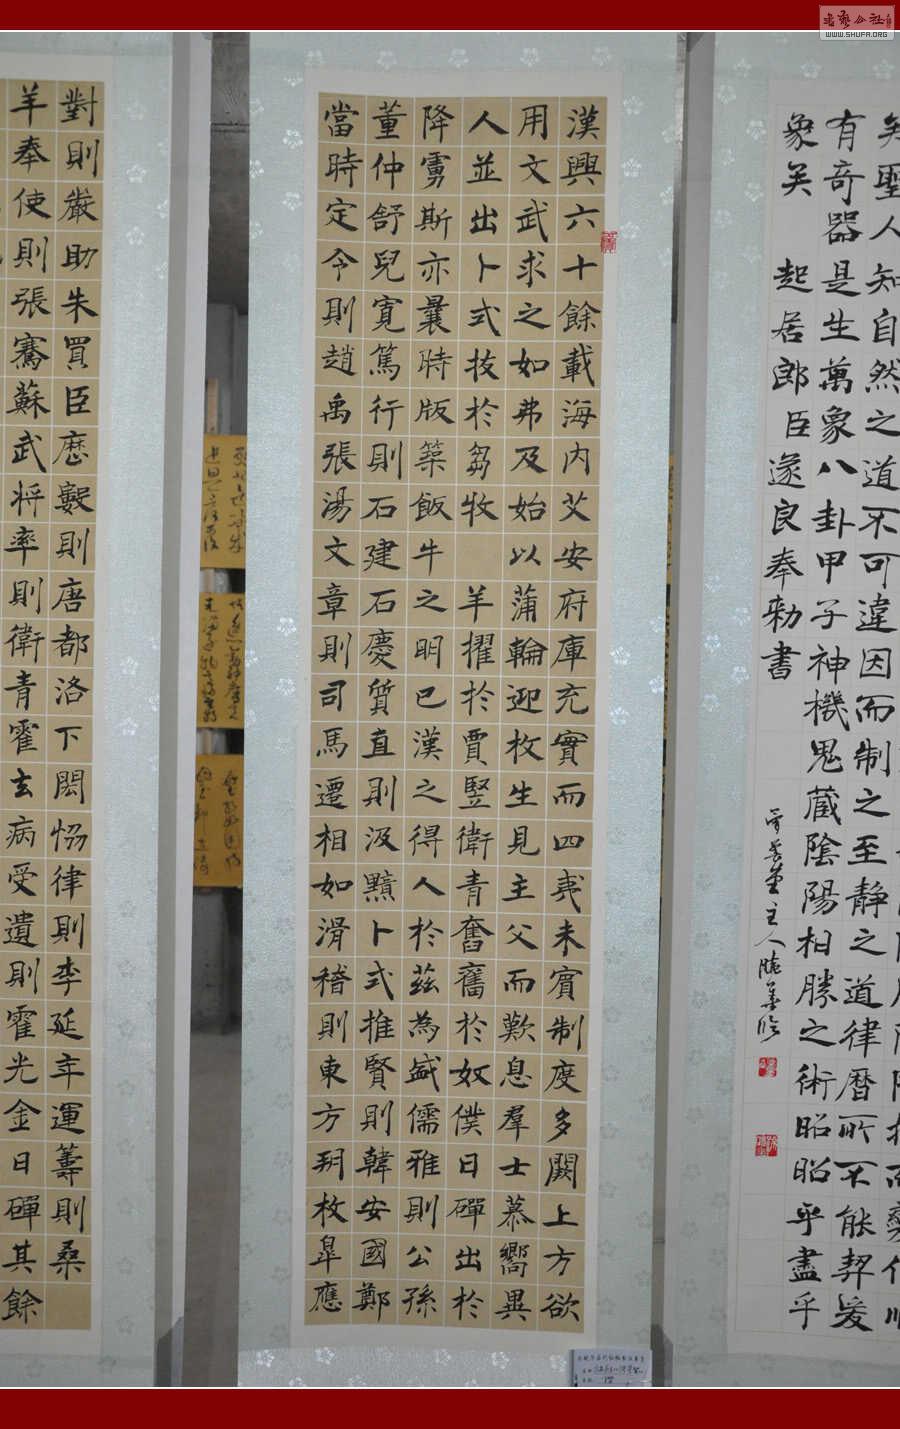 書藝公社
WWW.SHUFA.ORG
矣聖人知自然之道不可違因而制之至静之道律暦所不能契爰
有奇器是生萬象八卦甲子神機鬼藏陰陽相勝之術昭昭乎盡乎
象矣 起居郎臣遂良奉勅書
漢興六十餘載海内艾安府庫充實而四夷未賓制度多闕上方欲
用文武求之如弗及始以蒲輪迎枚生見主父而歎息羣士慕嚮異
人並出卜式拔於芻牧 羊擢於賈豎衛青奮舊於奴僕日磾出於
降虜斯亦曩時版築飯牛之明已漢之得人於茲為盛儒雅則公孫
董仲舒兒寬篤行則石建石慶質直則汲黯卜式推賢則韓安國鄭
當時定令則趙禹張湯文章則司馬遷相如滑稽則東方朔枚皐應
對則嚴助朱買臣歷數則唐都洛下閎恊律則李延年運籌則桑
羊奉使則張騫蘇武将率則衛青霍去病受遺則霍光金日磾其餘